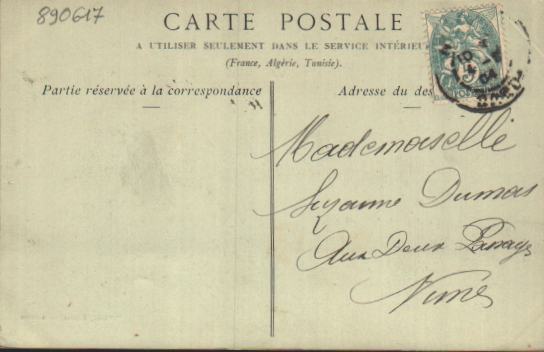 890617
CARTE POSTALE
A UTILISER SEULEMENT DANS LE SERVICE INTÉRIEUR
(France, Algérie, Tunisie).
Partie réservée à la correspondance
Adresse du des
Mademoiselle
Suzanne Dumas
Aux Deux Passages
Nimes